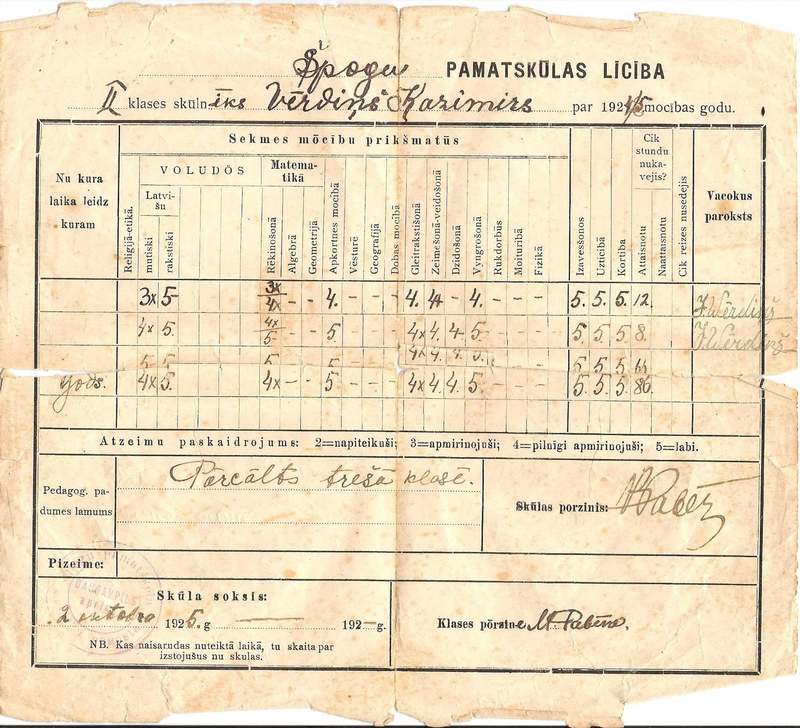 Špogu PAMATSKŪLAS LĪCĪBA
II klases skūlnīks Vērdiņš Kazimirs par 1924/5 mocības godu.
Nu kura laika leidz kuram
Sekmes mōcību prikšmatūs
VOLUDŌS
Matematikā
Latvišu
Religijā-etikā.
mutiski
rakstiski
Rēkinōšonā
Algebrā
Geometrijā
Apkōrtnes mocibā
Vēsturē
Geografijā
Dobas mocibā
Gleitrakstīšonā
Zeimešonā-veidošonā
Dzīdōšonā
Vyngrošonā
Rukdorbūs
Moiturībā
Fizikā
Izavesšonos
Uzticiba
Kortiba
Cik stundu nukavejis?
Attaisnotu
Naattaisnotu
Cik reizes nusedejis
Vacokus paroksts
3x 5 3x/4x - - 4. - - - 4. 4. - 4. - - - 5. 5. 5. 12. J.Wērdiņš
4x 5. 4x/5 - - 5. - - - 4x 4. 4 5. - - - 5. 5. 5. 8. J.Wērdiņš
5 5. 5 - - 5 - - - 4x 4. 4. 5. 5. 5. 5.
gods. 4x 5. 4x - - 5 - - - 4x 4. 4. 5. - - - 5. 5. 5. 86
Atzeimu paskaidrojums: 2=napiteikuši; 3=apmirinojuši; 4=pilnīgi apmirinojuši; 5=labi.
Pedagog. padumes lamums
Pōrcālts trešā klasē.
Skūlas porzinis:
Pizeime:
Skūla soksis:
2 oktobra 1925. g — 192–g.
Klases pōrzine M. Pabēne.
NB. Kas naisarudas nuteiktā laikā, tu skaita par izstojušus nu skulas.